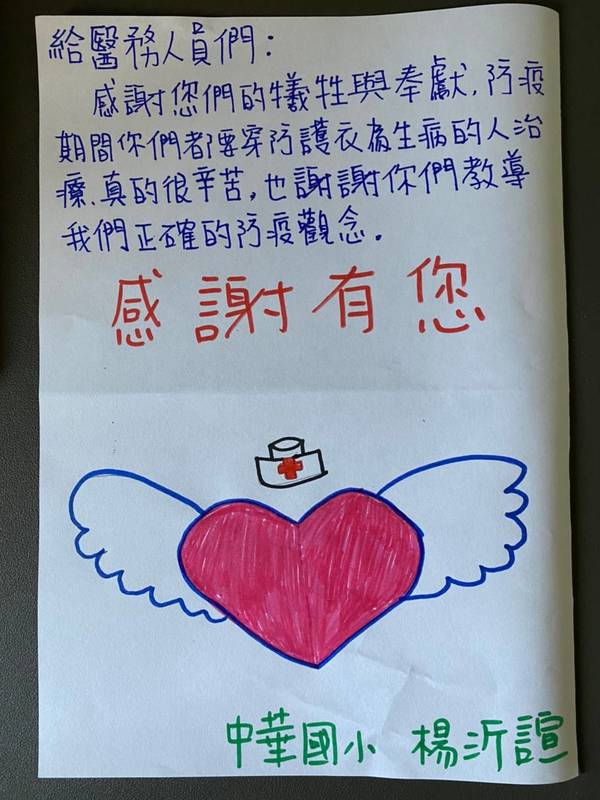 給醫務人員們：
感謝您們的犧牲與奉獻，防疫
期間你們都要穿防護衣為生病的人治
療、真的很辛苦，也謝謝你們教導
我們正確的防疫觀念。
感謝有您
中華國小 楊沂諠